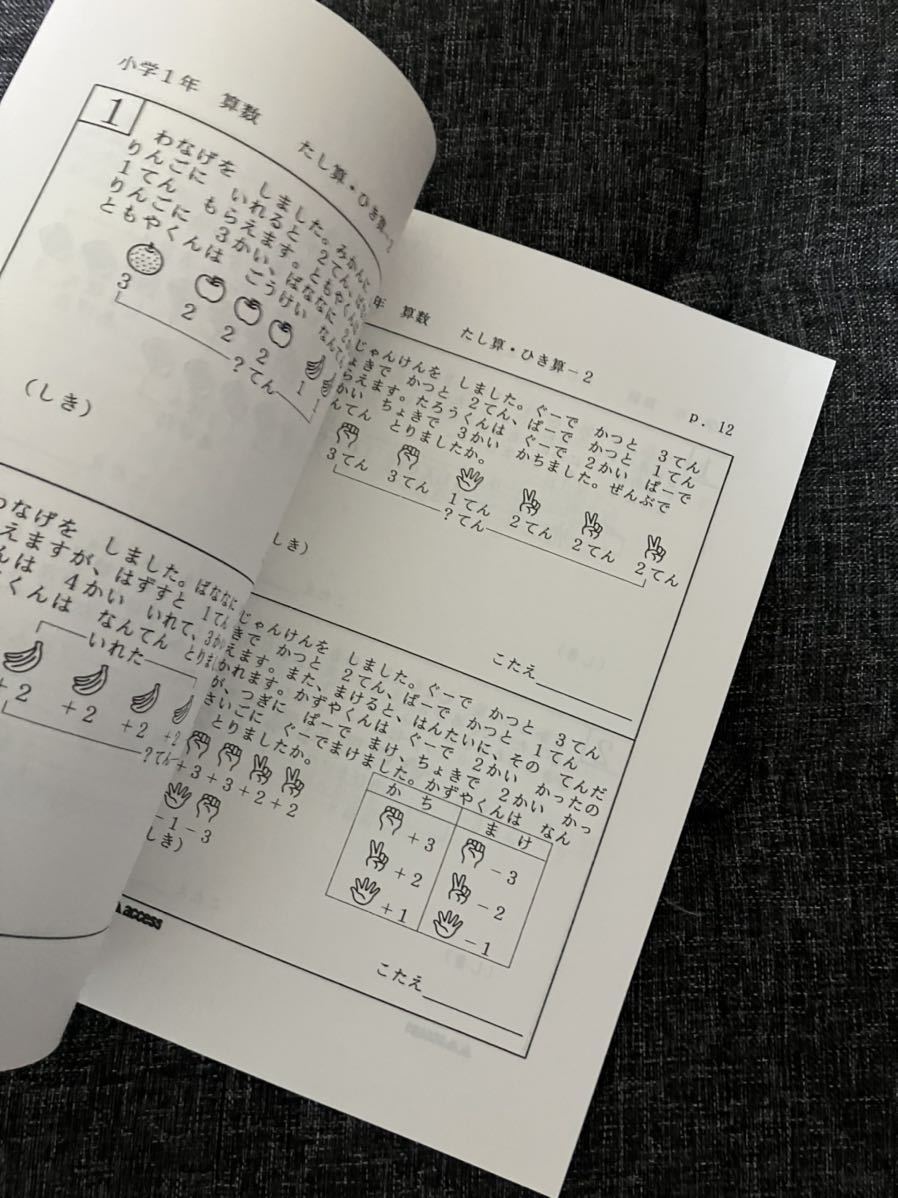 小学1年 算数 たし算・ひき算-2
1
わなげを しました。みかんに
りんごに いれると 2てん、
1てん もらえます。ともやくんは
りんごに 3かい、ばななに 2
ともやくんは ごうけい なんてん
3 2 2 2 1
?てん
(しき)
なげを しました。ばななに
えますが、はずすと 1てん
んは 4かい いれて、3か
くんは なんてん とりま
いれた
+2 +2 +2 +2
?てん
年 算数 たし算・ひき算-2
p. 12
じゃんけんを しました。ぐーで かつと 3てん
ょきで かつと 2てん、ぱーで かつと 1てん
らえます。たろうくんは ぐーで 2かい ぱーで
かい ちょきで 3かい かちました。ぜんぶで
んてん とりましたか。
3てん 3てん 1てん 2てん 2てん 2てん
?てん
しき)
こたえ
じゃんけんを しました。ぐーで かつと 3てん
きで かつと 2てん、ぱーで かつと 1てん
えます。また、まけると、はんたいに、その てんだ
かれます。かずやくんは ぐーで 2かい かったの
が、つぎに ぱーで まけ、ちょきで 2かい かっ
さいごに ぐーでまけました。かずやくんは なん
とりましたか。
+3+3+2+2
-1-3
しき)
かち まけ
+3 -3
+2 -2
+1 -1
access
こたえ